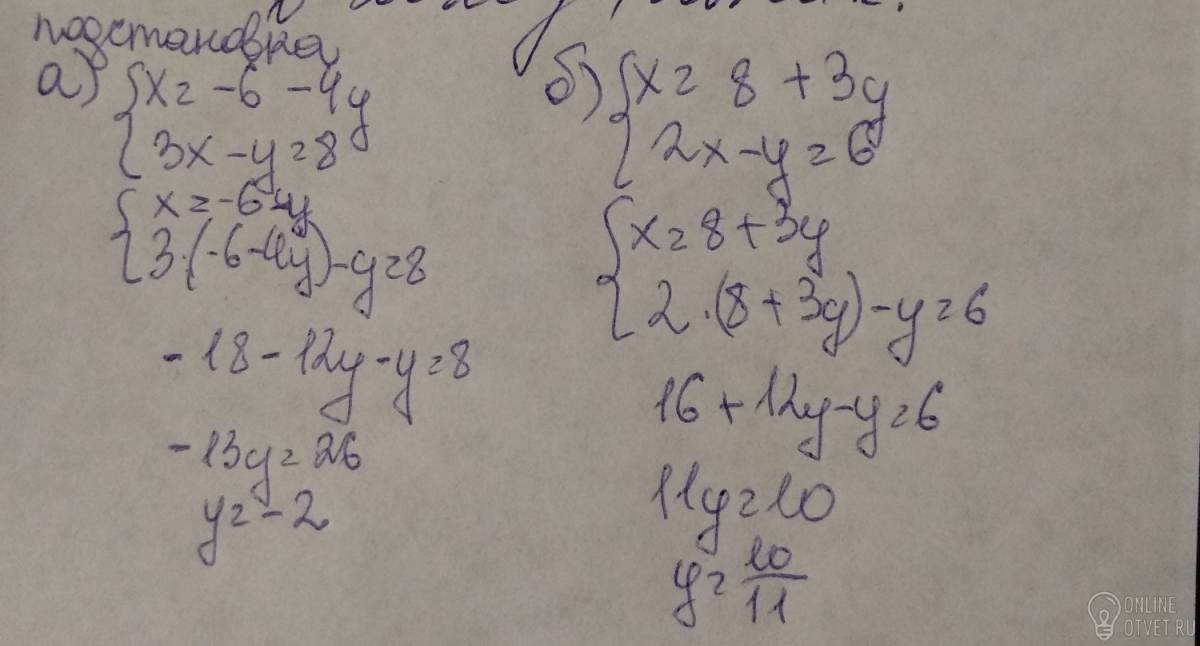 подстановка
а) { x = -6 - 4y
3x - y = 8
{ x = -6 - y
3·(-6-4y) - y = 8
- 18 - 12y - y = 8
- 13y = 26
y = - 2
б) { x = 8 + 3y
2x - y = 6
{ x = 8 + 3y
2·(8 + 3y) - y = 6
16 + 12y - y = 6
11y = 10
y = 10/11
ONLINE
OTVET.RU